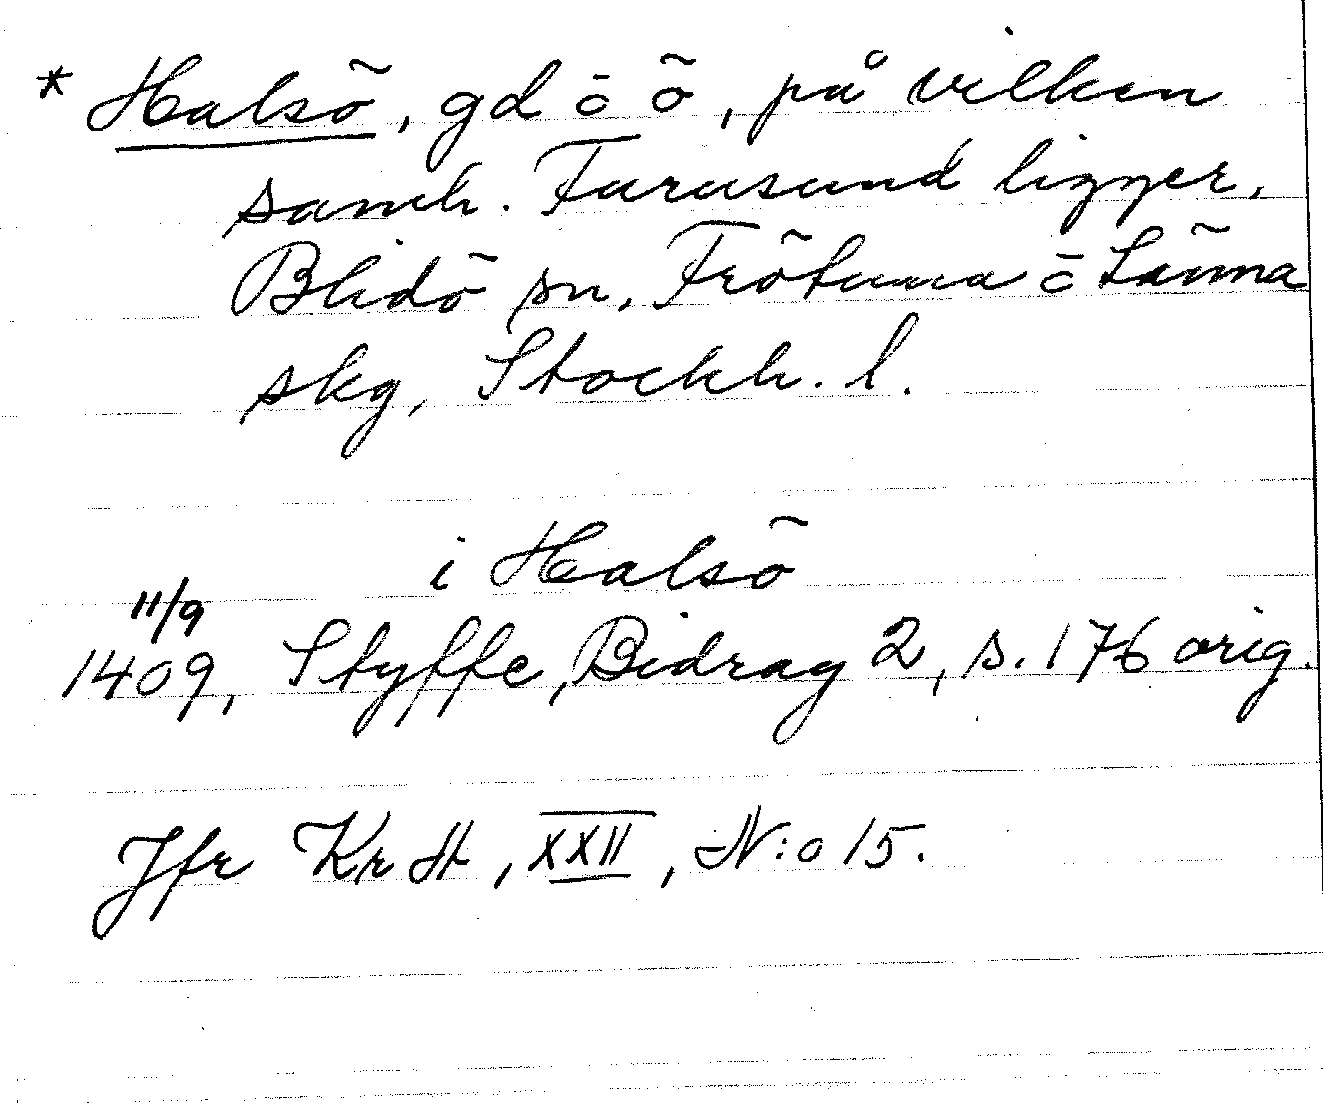 * Halsö, gd o ö, på vilken
samh. Furusund ligger,
Blidö sn, Frötuna o Länna
skg, Stockh. l.
i Halsö
11/9
1409, Styffe, Bidrag 2, s. 176 orig.
Jfr Kr H, XXII, N:o 15.